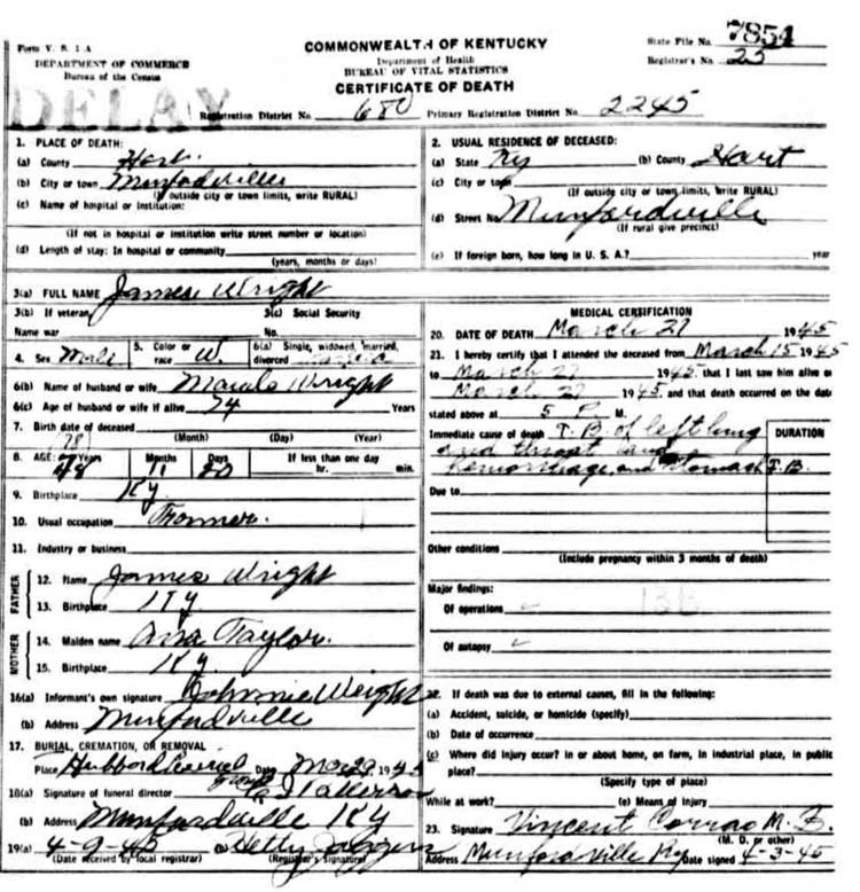 Form V. S. 1-A
DEPARTMENT OF COMMERCE
Bureau of the Census
DELAY
COMMONWEALTH OF KENTUCKY
Department of Health
BUREAU OF VITAL STATISTICS
CERTIFICATE OF DEATH
State File No. 7854
Registrar's No. 25
Registration District No. 680 Primary Registration District No. 2245
1. PLACE OF DEATH:
(a) County Hart
(b) City or town Munfordville
(If outside city or town limits, write RURAL)
(c) Name of hospital or Institution:
(If not in hospital or institution write street number or location)
(d) Length of stay: In hospital or community
(years, months or days)
2. USUAL RESIDENCE OF DECEASED:
(a) State Ky (b) County Hart
(c) City or town
(If outside city or town limits, write RURAL)
(d) Street No. Munfordville
(If rural give precinct)
(e) If foreign born, how long in U. S. A.? year
3(a) FULL NAME James Wright
3(b) If veteran, 3(c) Social Security
Name war No.
4. Sex Male 5. Color or race W. 6(a) Single, widowed, married, divorced
6(b) Name of husband or wife Wright
6(c) Age of husband or wife if alive 74 Years
7. Birth date of deceased
(Month) (Day) (Year)
(78)
8. AGE: Years 78 Months 11 Days 20 If less than one day hr. min.
9. Birthplace Ky
10. Usual occupation Farmer.
11. Industry or business
FATHER
12. Name James Wright
13. Birthplace Ky
MOTHER
14. Maiden name Ana Taylor.
15. Birthplace Ky.
16(a) Informant's own signature Johnnie Wright
(b) Address Munfordville
17. BURIAL, CREMATION, OR REMOVAL
Place Hubbord Date Mar 29 1945
18(a) Signature of funeral director
(b) Address Munfordville Ky
19(a) 4-9-45 Hetty Jaggers
(Date received by local registrar) (Registrar's signature)
MEDICAL CERTIFICATION
20. DATE OF DEATH March 27 1945
21. I hereby certify that I attended the deceased from March 15 1945
to March 27 1945. that I last saw him alive on
March 27 1945 and that death occurred on the date
stated above at 5 P. M.
Immediate cause of death T.B. of left lung
and throat and
hemorrhage, and stomach T.B.
DURATION
Due to
Other conditions
(Include pregnancy within 3 months of death)
Major findings:
Of operations
13B
Of autopsy
22. If death was due to external causes, fill in the following:
(a) Accident, suicide, or homicide (specify)
(b) Date of occurrence
(c) Where did injury occur? In or about home, on farm, in industrial place, in public
place?
(Specify type of place)
While at work? (e) Means of Injury
23. Signature Vincent Corrao M. D.
(M. D. or other)
Address Munfordville Ky Date signed 4-3-45